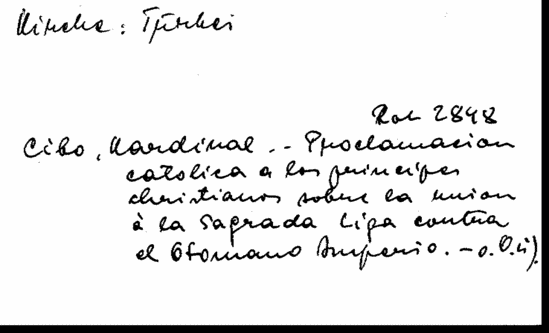 Kirche : Türkei
Rot 2848
Cibo, Kardinal. - Proclamacion
catolica a los principes
christianos sobre la union
à la Sagrada Liga contra
el Otomano Imperio. - o. O. u